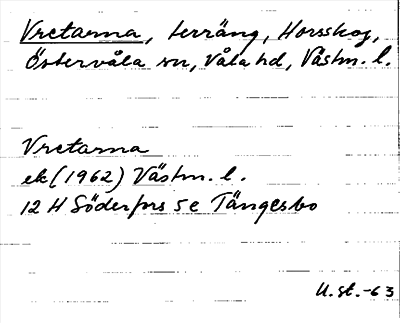 Vretarna, terräng, Horsskog,
Östervåla sn, Våla hd, Västm. l.
Vretarna
ek (1962) Västm. l.
12 H Söderfors 5e Tängesbo
U.st.-63